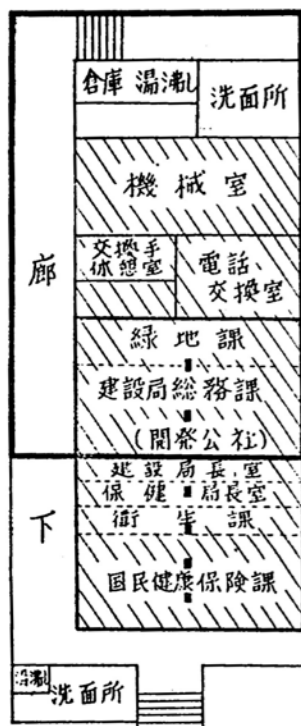 倉庫 湯沸し
洗面所
機械室
交換手
休憩室
電話
交換室
廊
緑地課
建設局総務課
(開発公社)
建設局長室
保健局長室
下
衛生課
国民健康保険課
湯沸し
洗面所